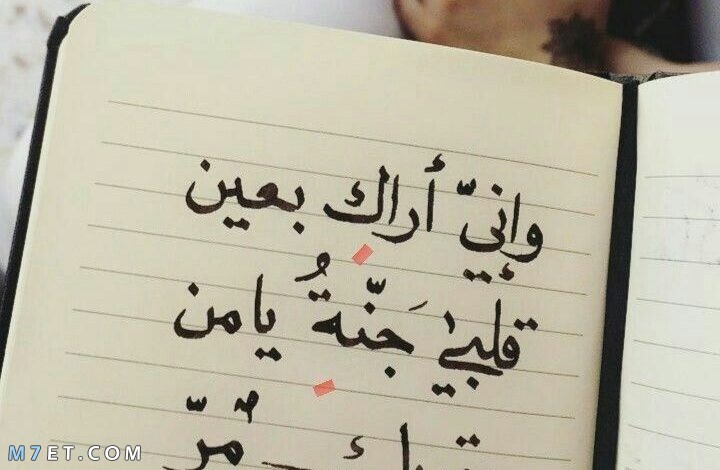 وإنيّ أراك بعين
قلبيٰ جَنّةٌ يامن
مُرّ
M7ET.COM